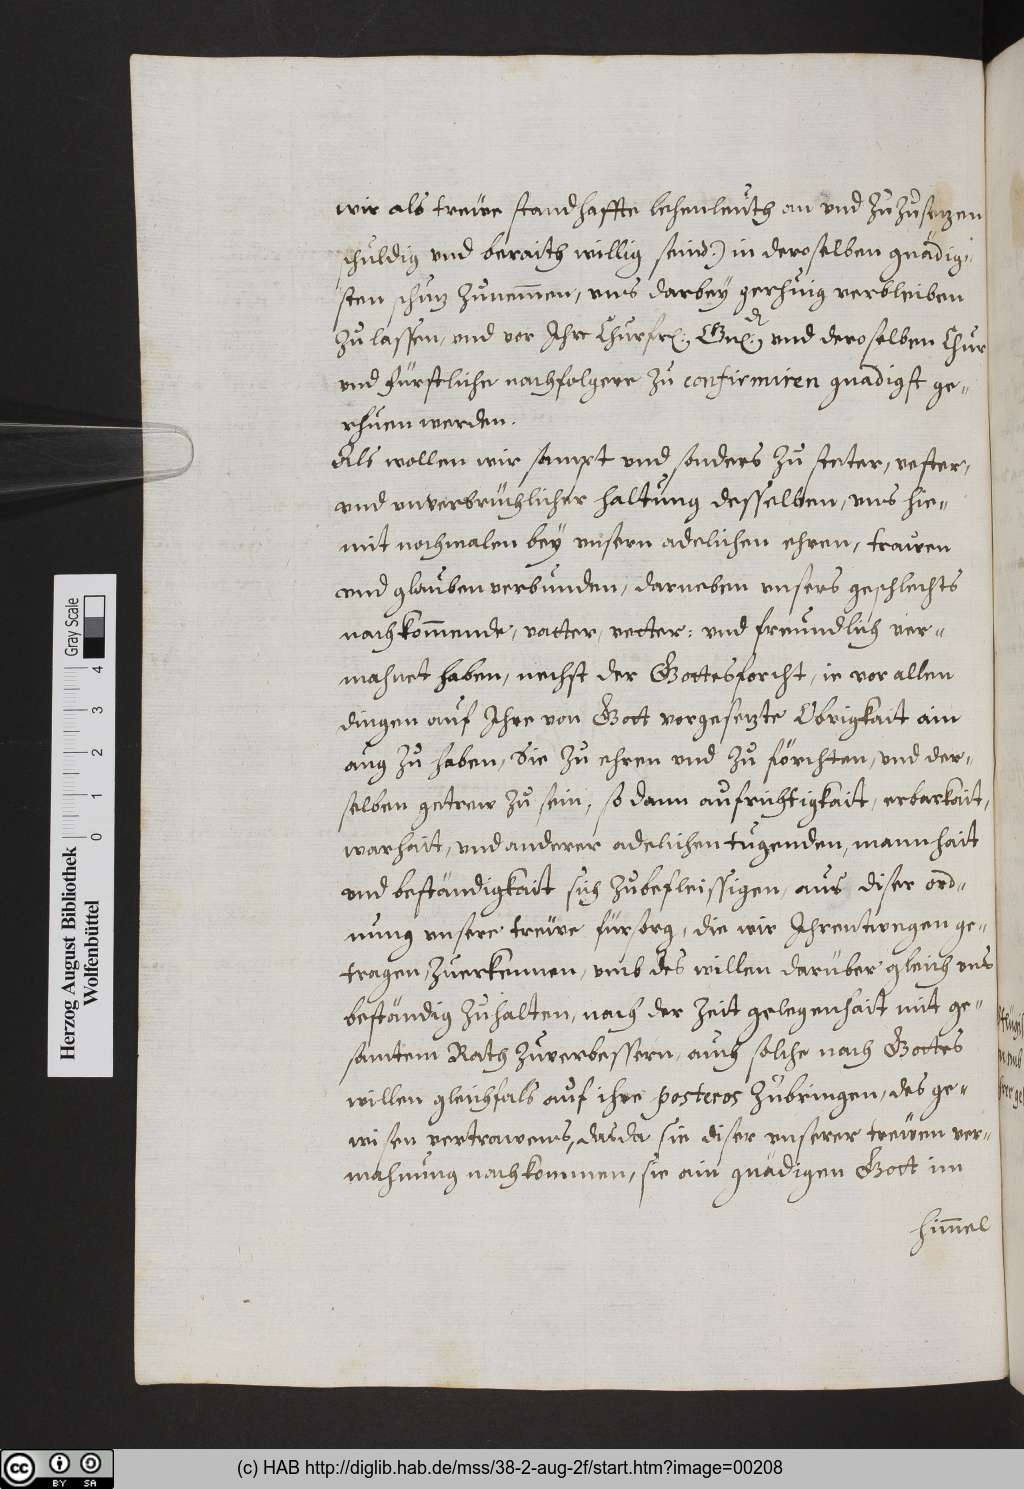 wir als treüe standhaffte lehenleüth an und Zu Zusezen
schuldig und beraith willig seind:) in deroselben gnädig=
sten schuz Zunem̄en, uns darbeÿ gerhuig verbleiben
Zu lassen, und vor Ihre Churfrl: Gnd: und deroselben Chur
und fürstliche nachfolgere Zu confirmiren gnädigst ge=
rhuen werden.
Als wollen wir sampt und sonders Zu steter, vester,
und unverbrüchlicher haltung desselben, uns hie=
mit nochmalen beÿ unsern adelichen ehren, trawen
und glauben verbunden, darneben unsers geschlechts
nachkom̄ende, vatter, vetter: und freundlich ver=
mahnet haben, nechst der Gottesforcht, ie vor allen
dingen auf Ihre von Gott vorgesezte Obrigkait ain
aug Zu haben, Sie Zu ehren und Zu förchten, und der=
selben getrew Zu sein, so dann aufrichtigkait, erbarkait,
warhait, und anderer adelichen tugenden, mannhait
und beständigkait sich Zubefleissigen, aus diser ord=
nung unsere treüe fürsorg, die wir Ihrentwegen ge=
tragen, Zuerkennen, umb des willen darüber gleich uns
beständig Zuhalten, nach der Zeit gelegenhait mit ge=
samtem Rath Zuverbessern, auch solche nach Gottes
willen gleichfals auf ihre posteros Zubringen, des ge=
wisen vertrawens, das da sie diser unserer treüen ver=
mahnung nachkommen, sie ain gnädigen Gott im
him̄el
Herzog August Bibliothek
Wolfenbüttel
Gray Scale
0 1 2 3 4
(c) HAB http://diglib.hab.de/mss/38-2-aug-2f/start.htm?image=00208
cc BY SA